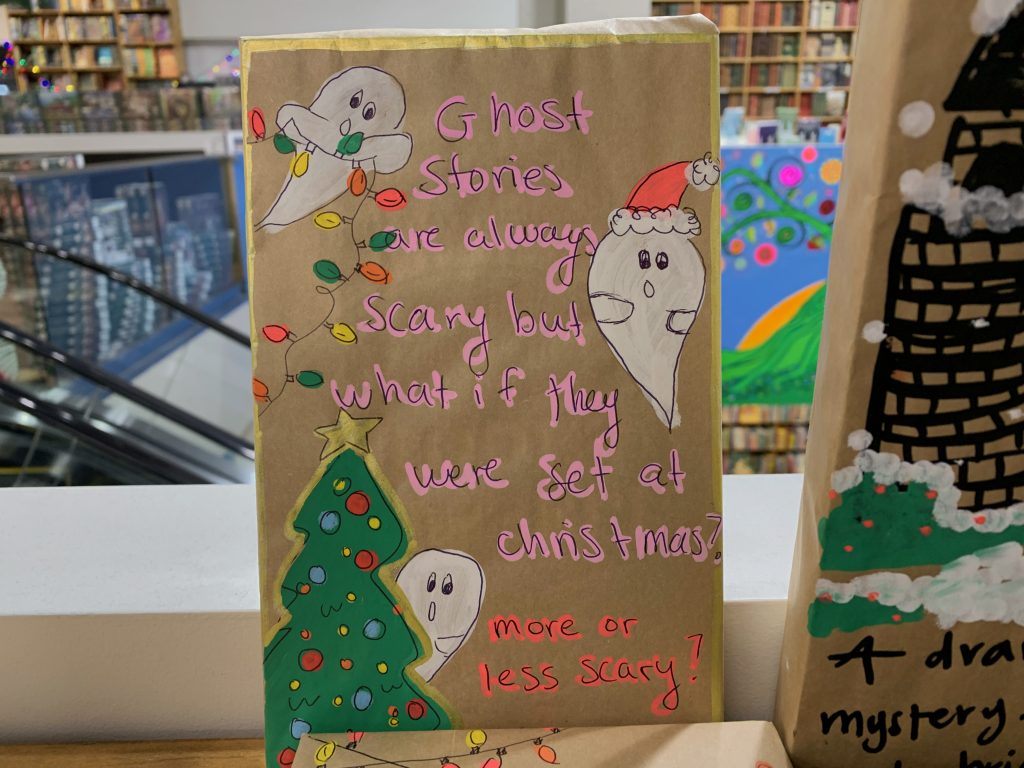 Ghost
Stories
are always
scary but
what if they
were set at
christmas?
more or
less scary?
A dra
mystery